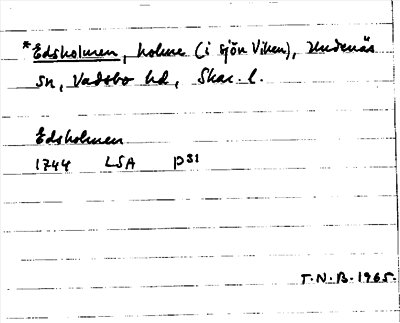 *Edsholmen, holme (i sjön Viken), Undenäs
sn, Vadsbo hd, Skar. l.
Edsholmen
1744 LSA p31
T.N.B. 1965.